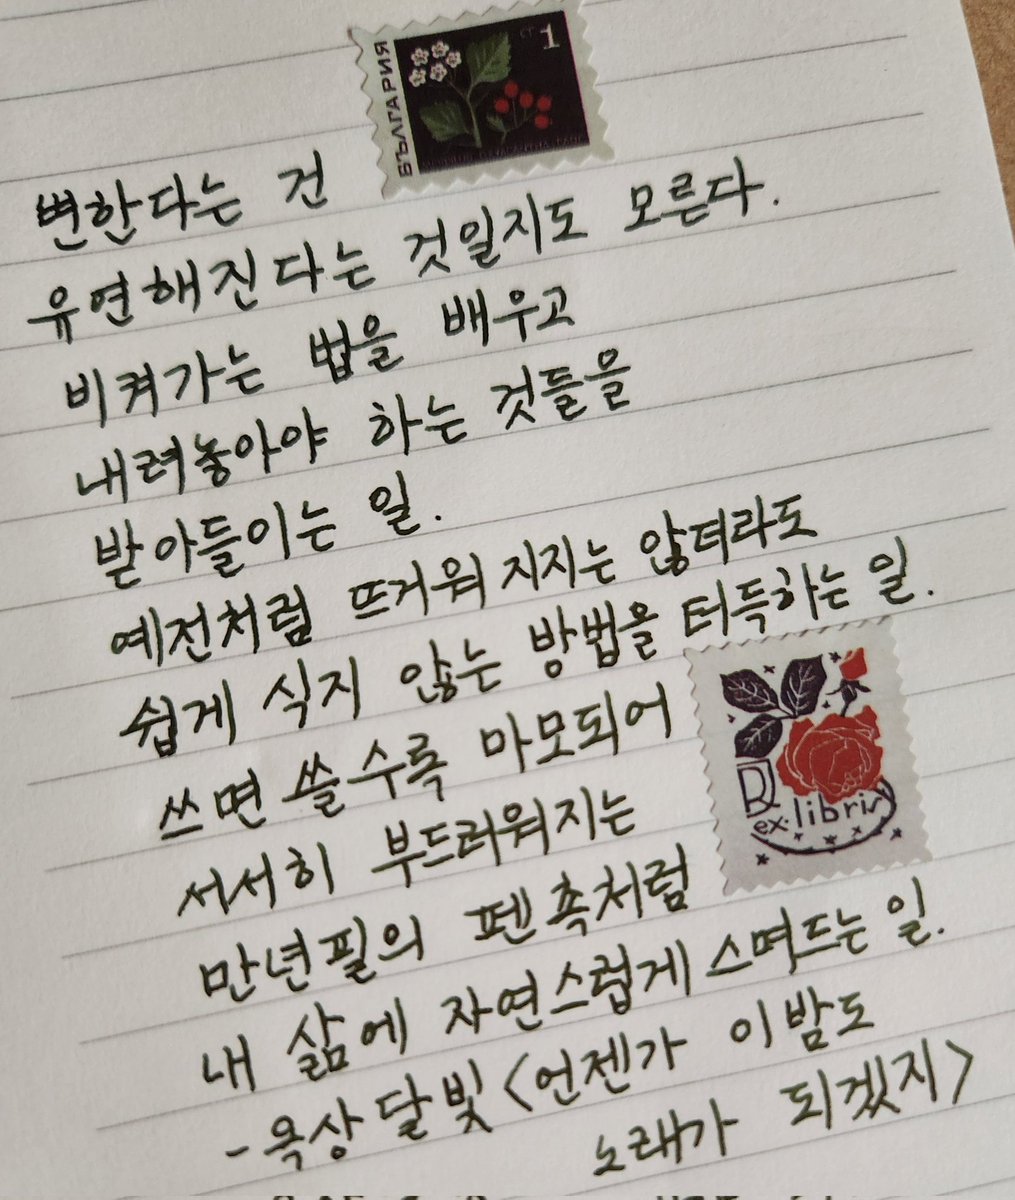 БЪЛГАРИЯ
CT 1
변한다는 건
유연해진다는 것일지도 모른다.
비켜가는 법을 배우고
내려놓아야 하는 것들을
받아들이는 일.
예전처럼 뜨거워 지지는 않더라도
쉽게 식지 않는 방법을 터득하는 일.
쓰면 쓸수록 마모되어
ex·libris
서서히 부드러워지는
만년필의 펜촉처럼
내 삶에 자연스럽게 스며드는 일.
-옥상달빛 <언젠가 이 밤도
노래가 되겠지>